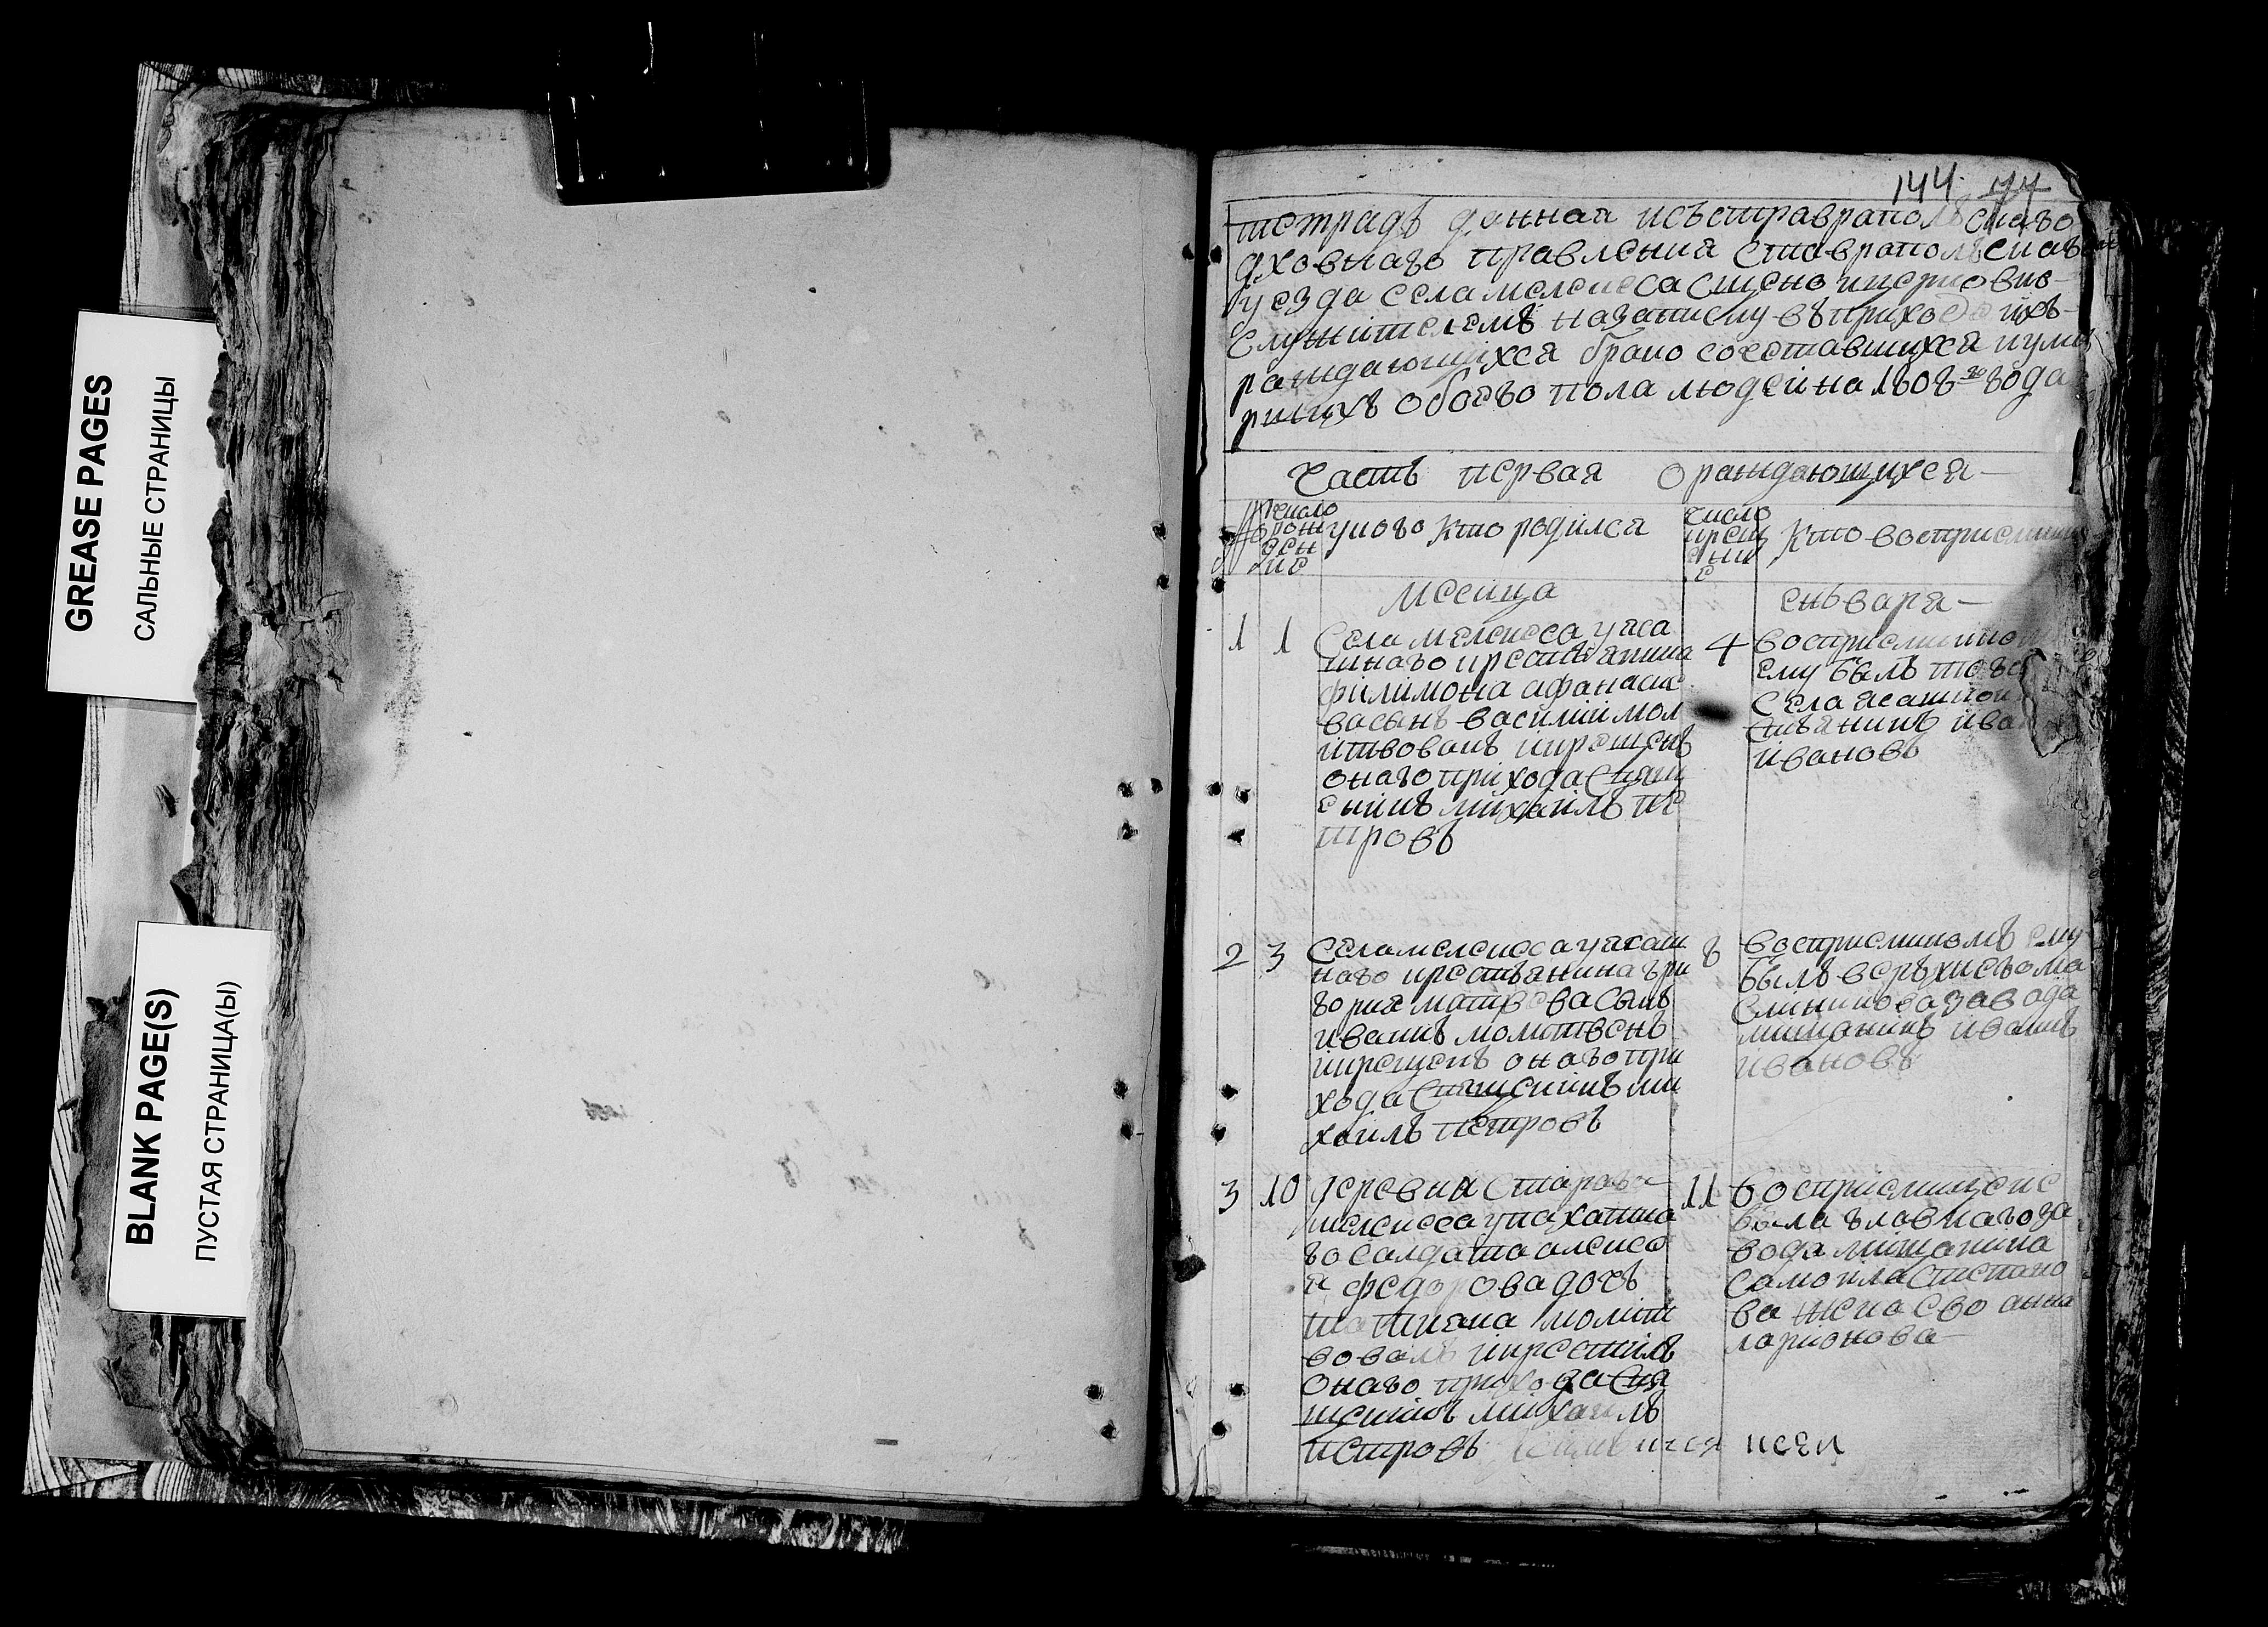 GREASE PAGES
САЛЬНЫЕ СТРАНИЦЫ
BLANK PAGE(S)
ПУСТАЯ СТРАНИЦА(Ы)
144. 74
тетрадь данная исъставрапольскаго
дховнаго правления ставрапольскаго
уезда села мелекеса сщено ицерковно
служителемъ назаписку въприходе ихъ
раждающихся брако сочетавшихся иуме
ршихъ обоего пола людей на 1808 го года
Часть первая о раждающихся
число рождение
укого кто родился
число крещение
кто восприемник
месеца
еньваря
1 1
села мелекеса уяса
шнаго крестьянина
филимона афанасье
ва сынъ василий мол
итвовалъ икрещенъ
онаго прихода сщящ
еникъ михаилъ пе
тровъ
4
восприемником
ему былъ тогож
села ясашной
стьянинъ иван
ивановъ
2 3
села мелекеса уясаш
наго крестьянина гри
гория матвеева сынъ
иванъ молитвенъ
икрещенъ онаго при
хода сщященикъ ми
хаилъ петровъ
8
восприемникомъ ему
былъ
завода
мищанинъ иванъ
ивановъ
3 10
деревни стараго
мелекесса упахатна
го салдата алексе
я федорова дочь
татиана молит
вовалъ икрестилъ
онаго прихода свя
щеникъ михаилъ
петровъ
11
восприемницею
была главнаго за
вода мищанина
самоила степано
ва жена ево анна
ларионова